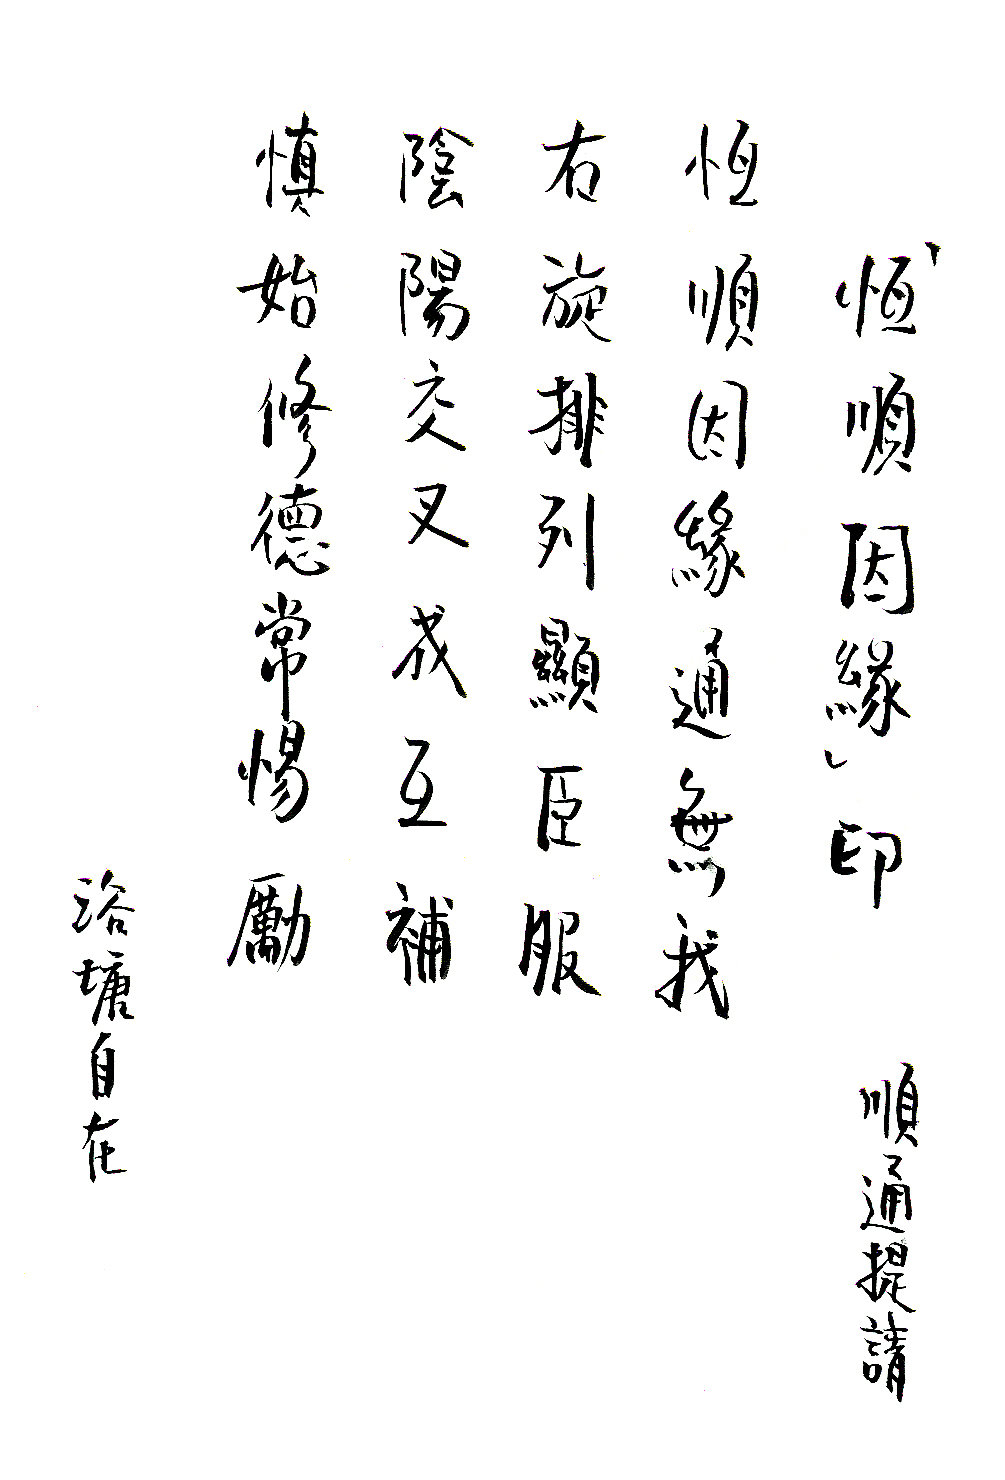 「恆順因緣」印　順通提請
恆順因緣通無我
右旋排列顯臣服
陰陽交叉成互補
慎始修德常惕勵
浴塘自在